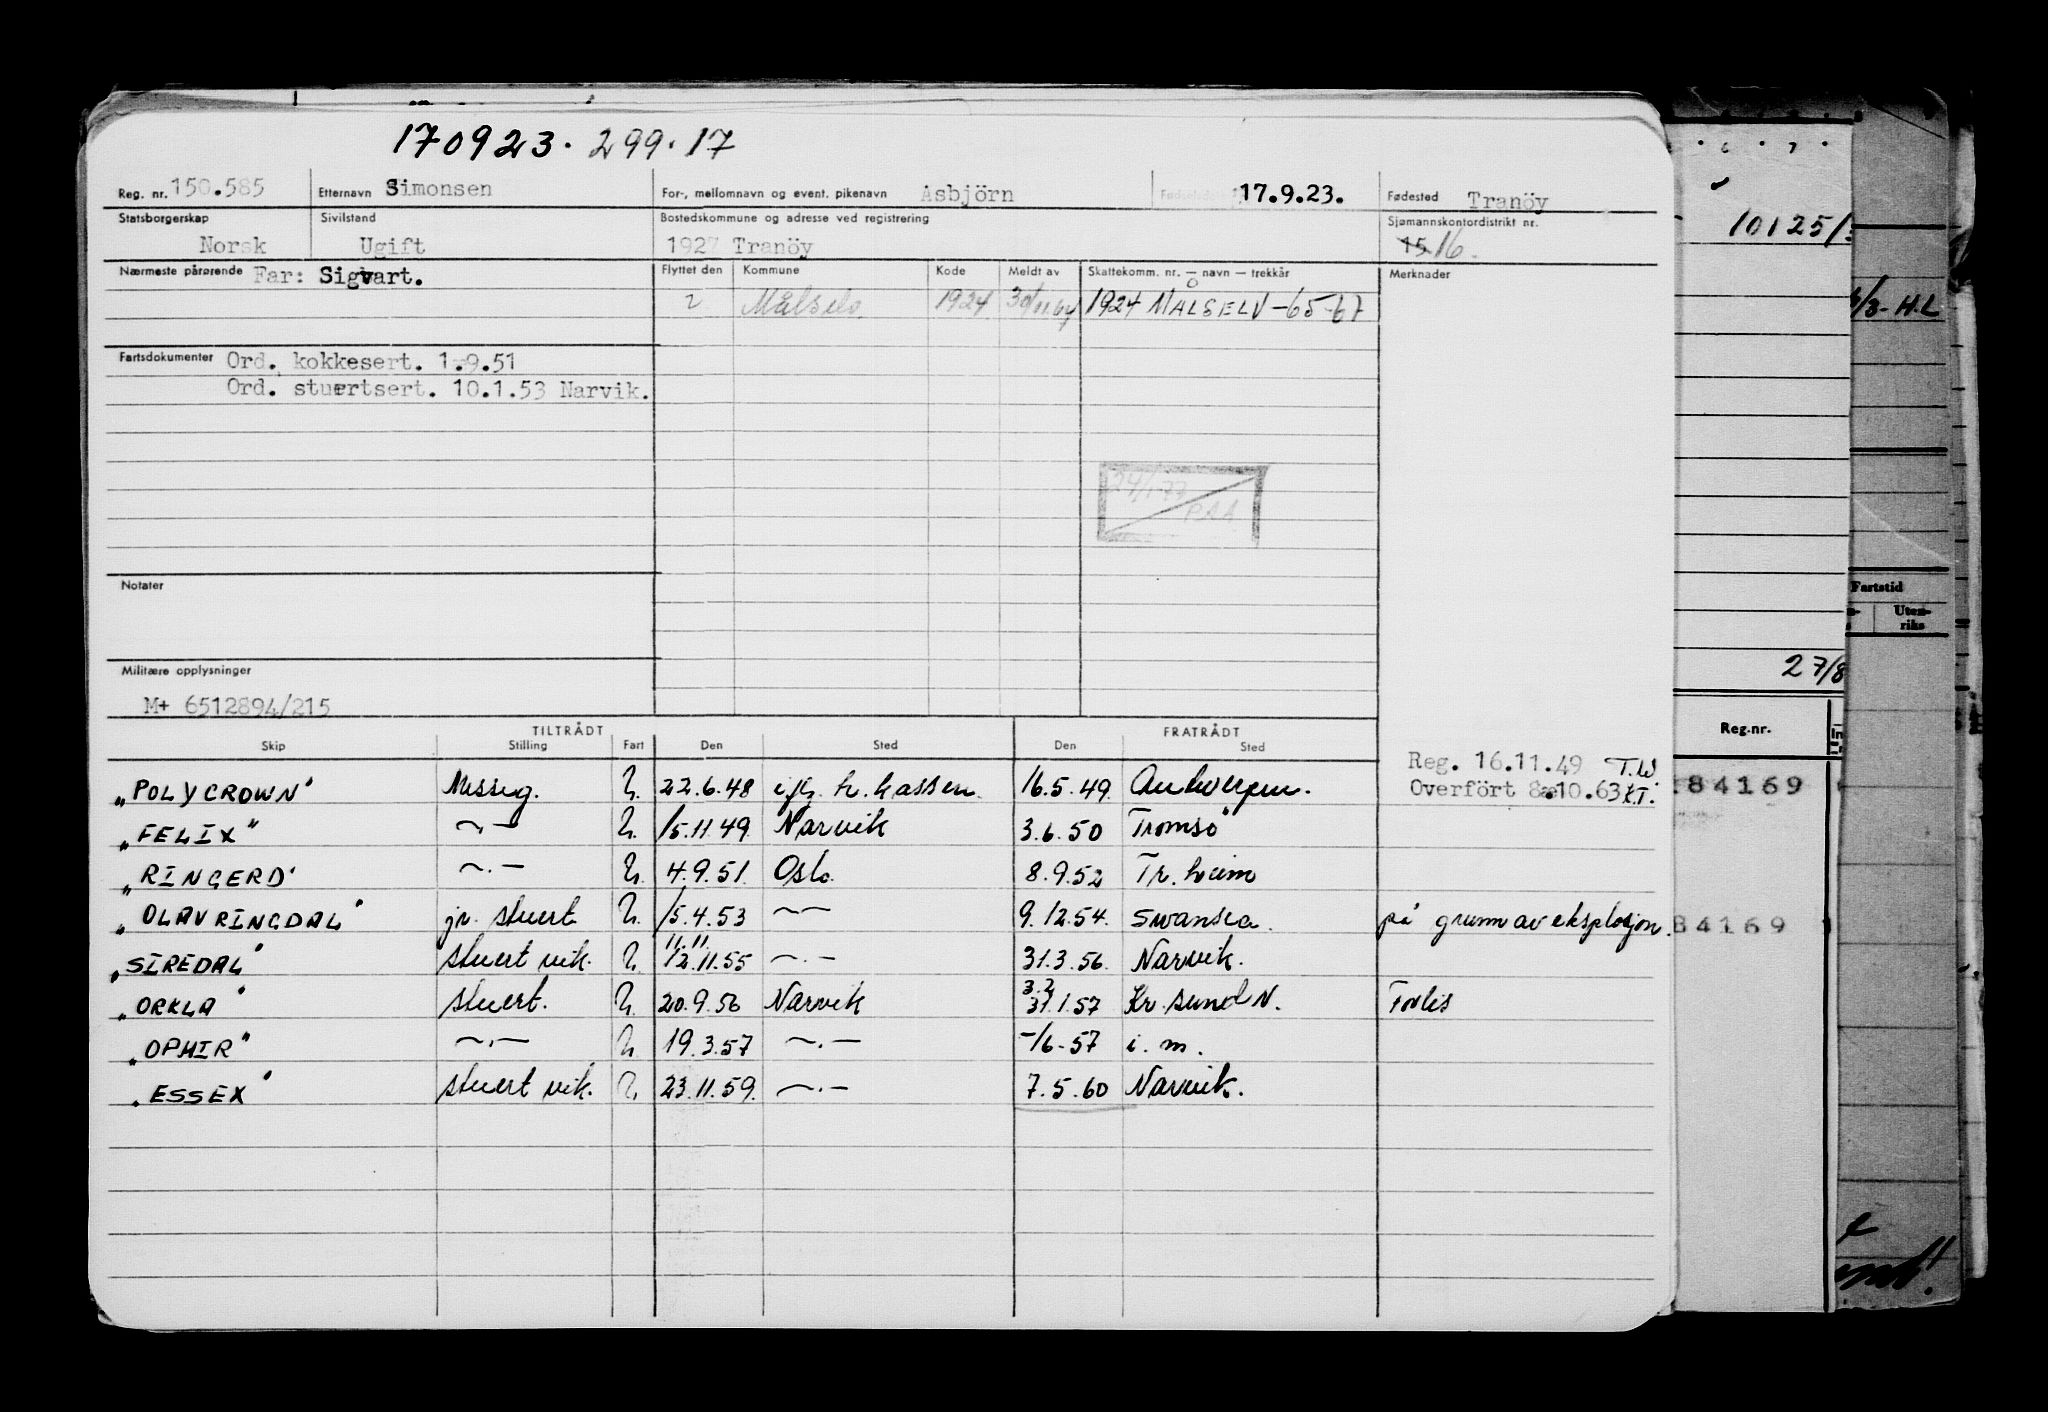 170923. 299.17
Reg. nr. 150.585 Etternavn Simonsen For-, mellomnavn og event. pikenavn Asbjörn 17.9.23. Fødested Tranöy
Statsborgerskap Norsk Sivilstand Ugift Bostedskommune og adresse ved registrering 1927 Tranöy Sjømannskontordistrikt nr. 15 16.
Nærmeste pårørende Far: Sigvart. Flyttet den Kommune Kode Meldt av Skattekomm. nr. – navn – trekkår Merknader
Målselv 1924 30/11.64 1924 MÅLSELV -65-67
Fartsdokumenter Ord. kokkesert. 1.9.51
Ord. stuertsert. 10.1.53 Narvik.
24/1-77
PAA
Notater
Militære opplysninger
M+ 6512894/215
TILTRÅDT FRATRÅDT
Skip Stilling Fart Den Sted Den Sted
Reg. 16.11.49 T.W
Overfört 8.10.63 K.T.
"POLYCROWN" Messeg. U. 22.6.48 iflg. h. kassen. 16.5.49. Antwerpen.
"FELIX" ~.— U. 15.11.49. Narvik 3.6.50 Tromsö
"RINGERD" ~.— U. 4.9.51. Oslo. 8.9.52 Tr.heim
"OLAV RINGDAL" jr. stuert U. 15.4.53 —~— 9.12.54. Swansea. på grunn av eksplosjon.
"SIREDAL" stuert vik. U. 11.11 12.11.55 ~.— 31.3.56. Narvik.
"ORKLA" stuert. U. 20.9.56 Narvik 3.2 31.1.57 Kr.sund N. Forlis
"OPHIR" ~.— U. 19.3.57 ~.— -/6-57 i. m.
"ESSEX" stuert vik. U. 23.11.59. ~.— 7.5.60 Narvik.
10125/
/8- H.L
Fartstid
Uten-
riks
27/8
Reg.nr.
84169
84169